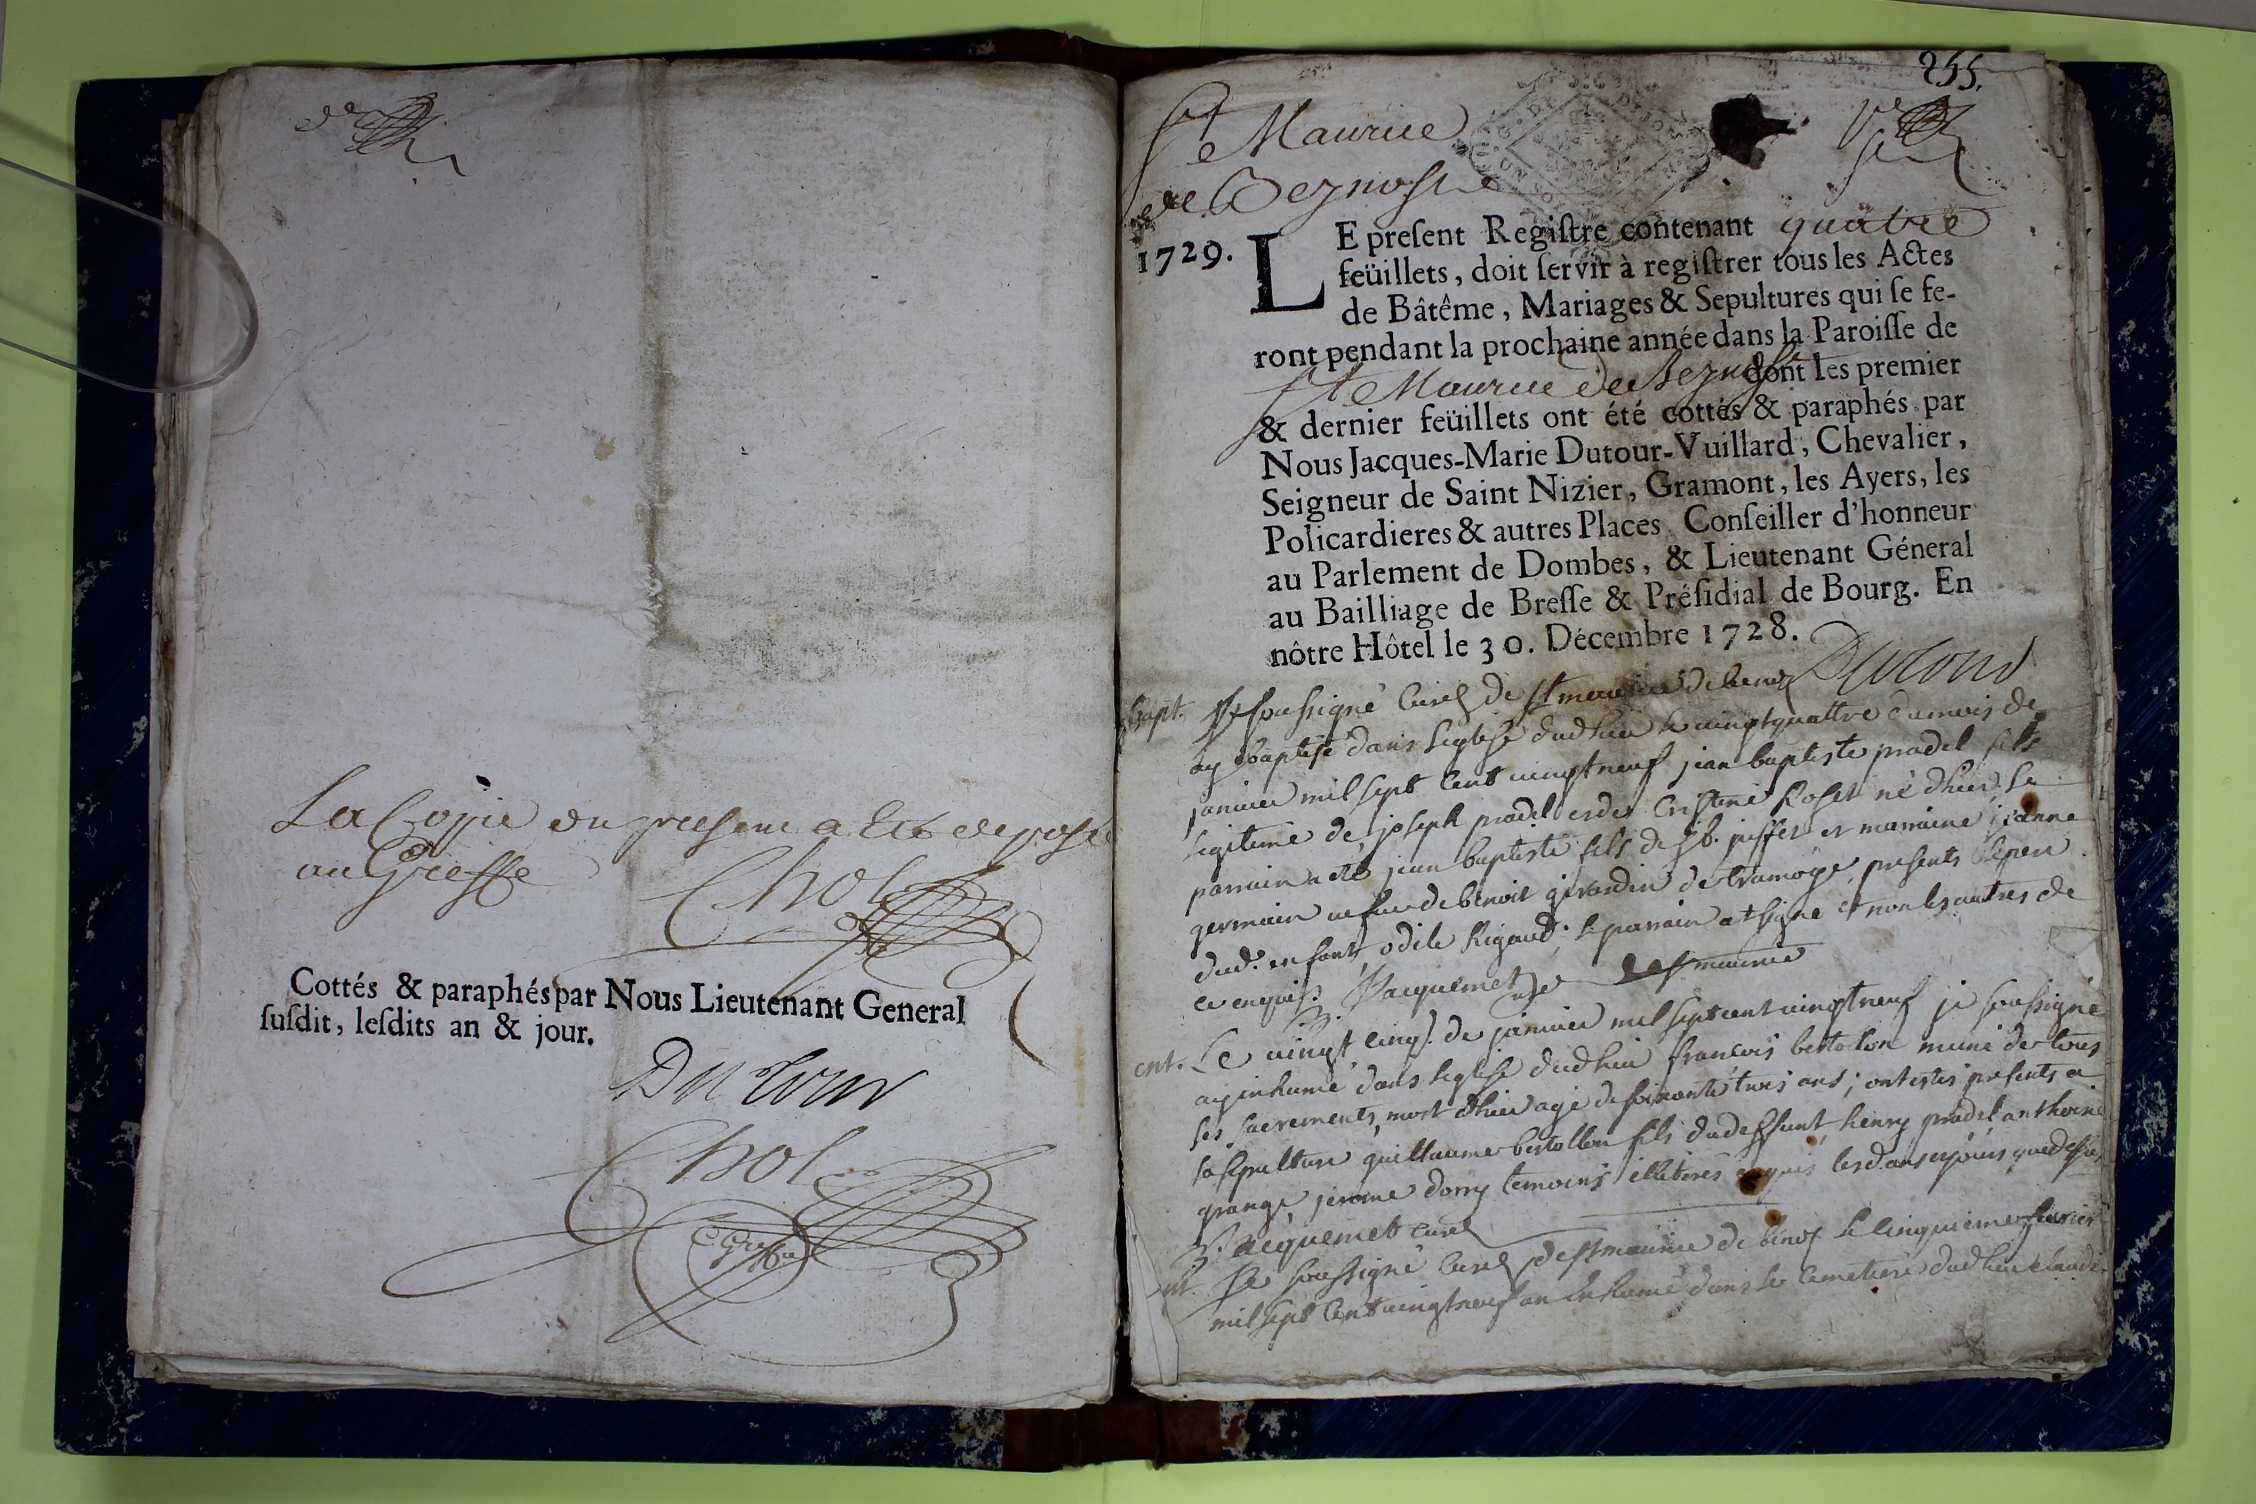 La Coppie du present a Eté deposée
au Greffe
Chol
Cottés & paraphés par Nous Lieutenant General
ſuſdit, leſdits an & jour.
Dutour
Chol
Greffier
255.
St Maurice
de Beynost
1729.
LE preſent Regiſtre contenant quatre
feüillets, doit ſervir à regiſtrer tous les Actes
de Bâtême, Mariages & Sepultures qui ſe fe-
ront pendant la prochaine année dans la Paroiſſe de
St Maurice de Beynost dont les premier
& dernier feüillets ont été cottés & paraphés par
Nous Jacques-Marie Dutour-Vuillard, Chevalier,
Seigneur de Saint Nizier, Gramont, les Ayers, les
Policardieres & autres Places, Conſeiller d'honneur
au Parlement de Dombes, & Lieutenant Géneral
au Bailliage de Breſſe & Préſidial de Bourg. En
nôtre Hôtel le 30. Décembre 1728.
Dutour
bapt. Je soussigné Curé de St maurice de
ay baptisé dans leglise dud lieu le vingtquattre du mois de
janvier mil sept cent vingt neuf jean baptiste pradel fils
legitime de joseph pradel et de Cristine Roset né dhier le
parrain a eté jean baptiste fils de jb. juffet et marraine jeanne
germain de benoit girardin de tramoye, presents le pere
dud. enfant, odile Rigaud; le parrain a signé et non les autres de
ce enquis. Jacquemet curé de St maurice
ent. Le vingt cinq de janvier mil sept cent vingt neuf je soussigné
ay inhumé dans leglise dud lieu francois bertolon muni de tous
les sacrements, mort dhier agé de soixante trois ans; ont estés presents a
sa sepulture guillaume bertollon fils dud deffunt henry pradel anthoine
grange, jerome dorry temoins illiterés enquis lesd. an et jours que dessus
Jacquemet curé
ent. Je soussigné Curé de St maurice de le cinquieme fevrier
mil sept cent vingt neuf ay inhumé dans le Cemetiere dud lieu